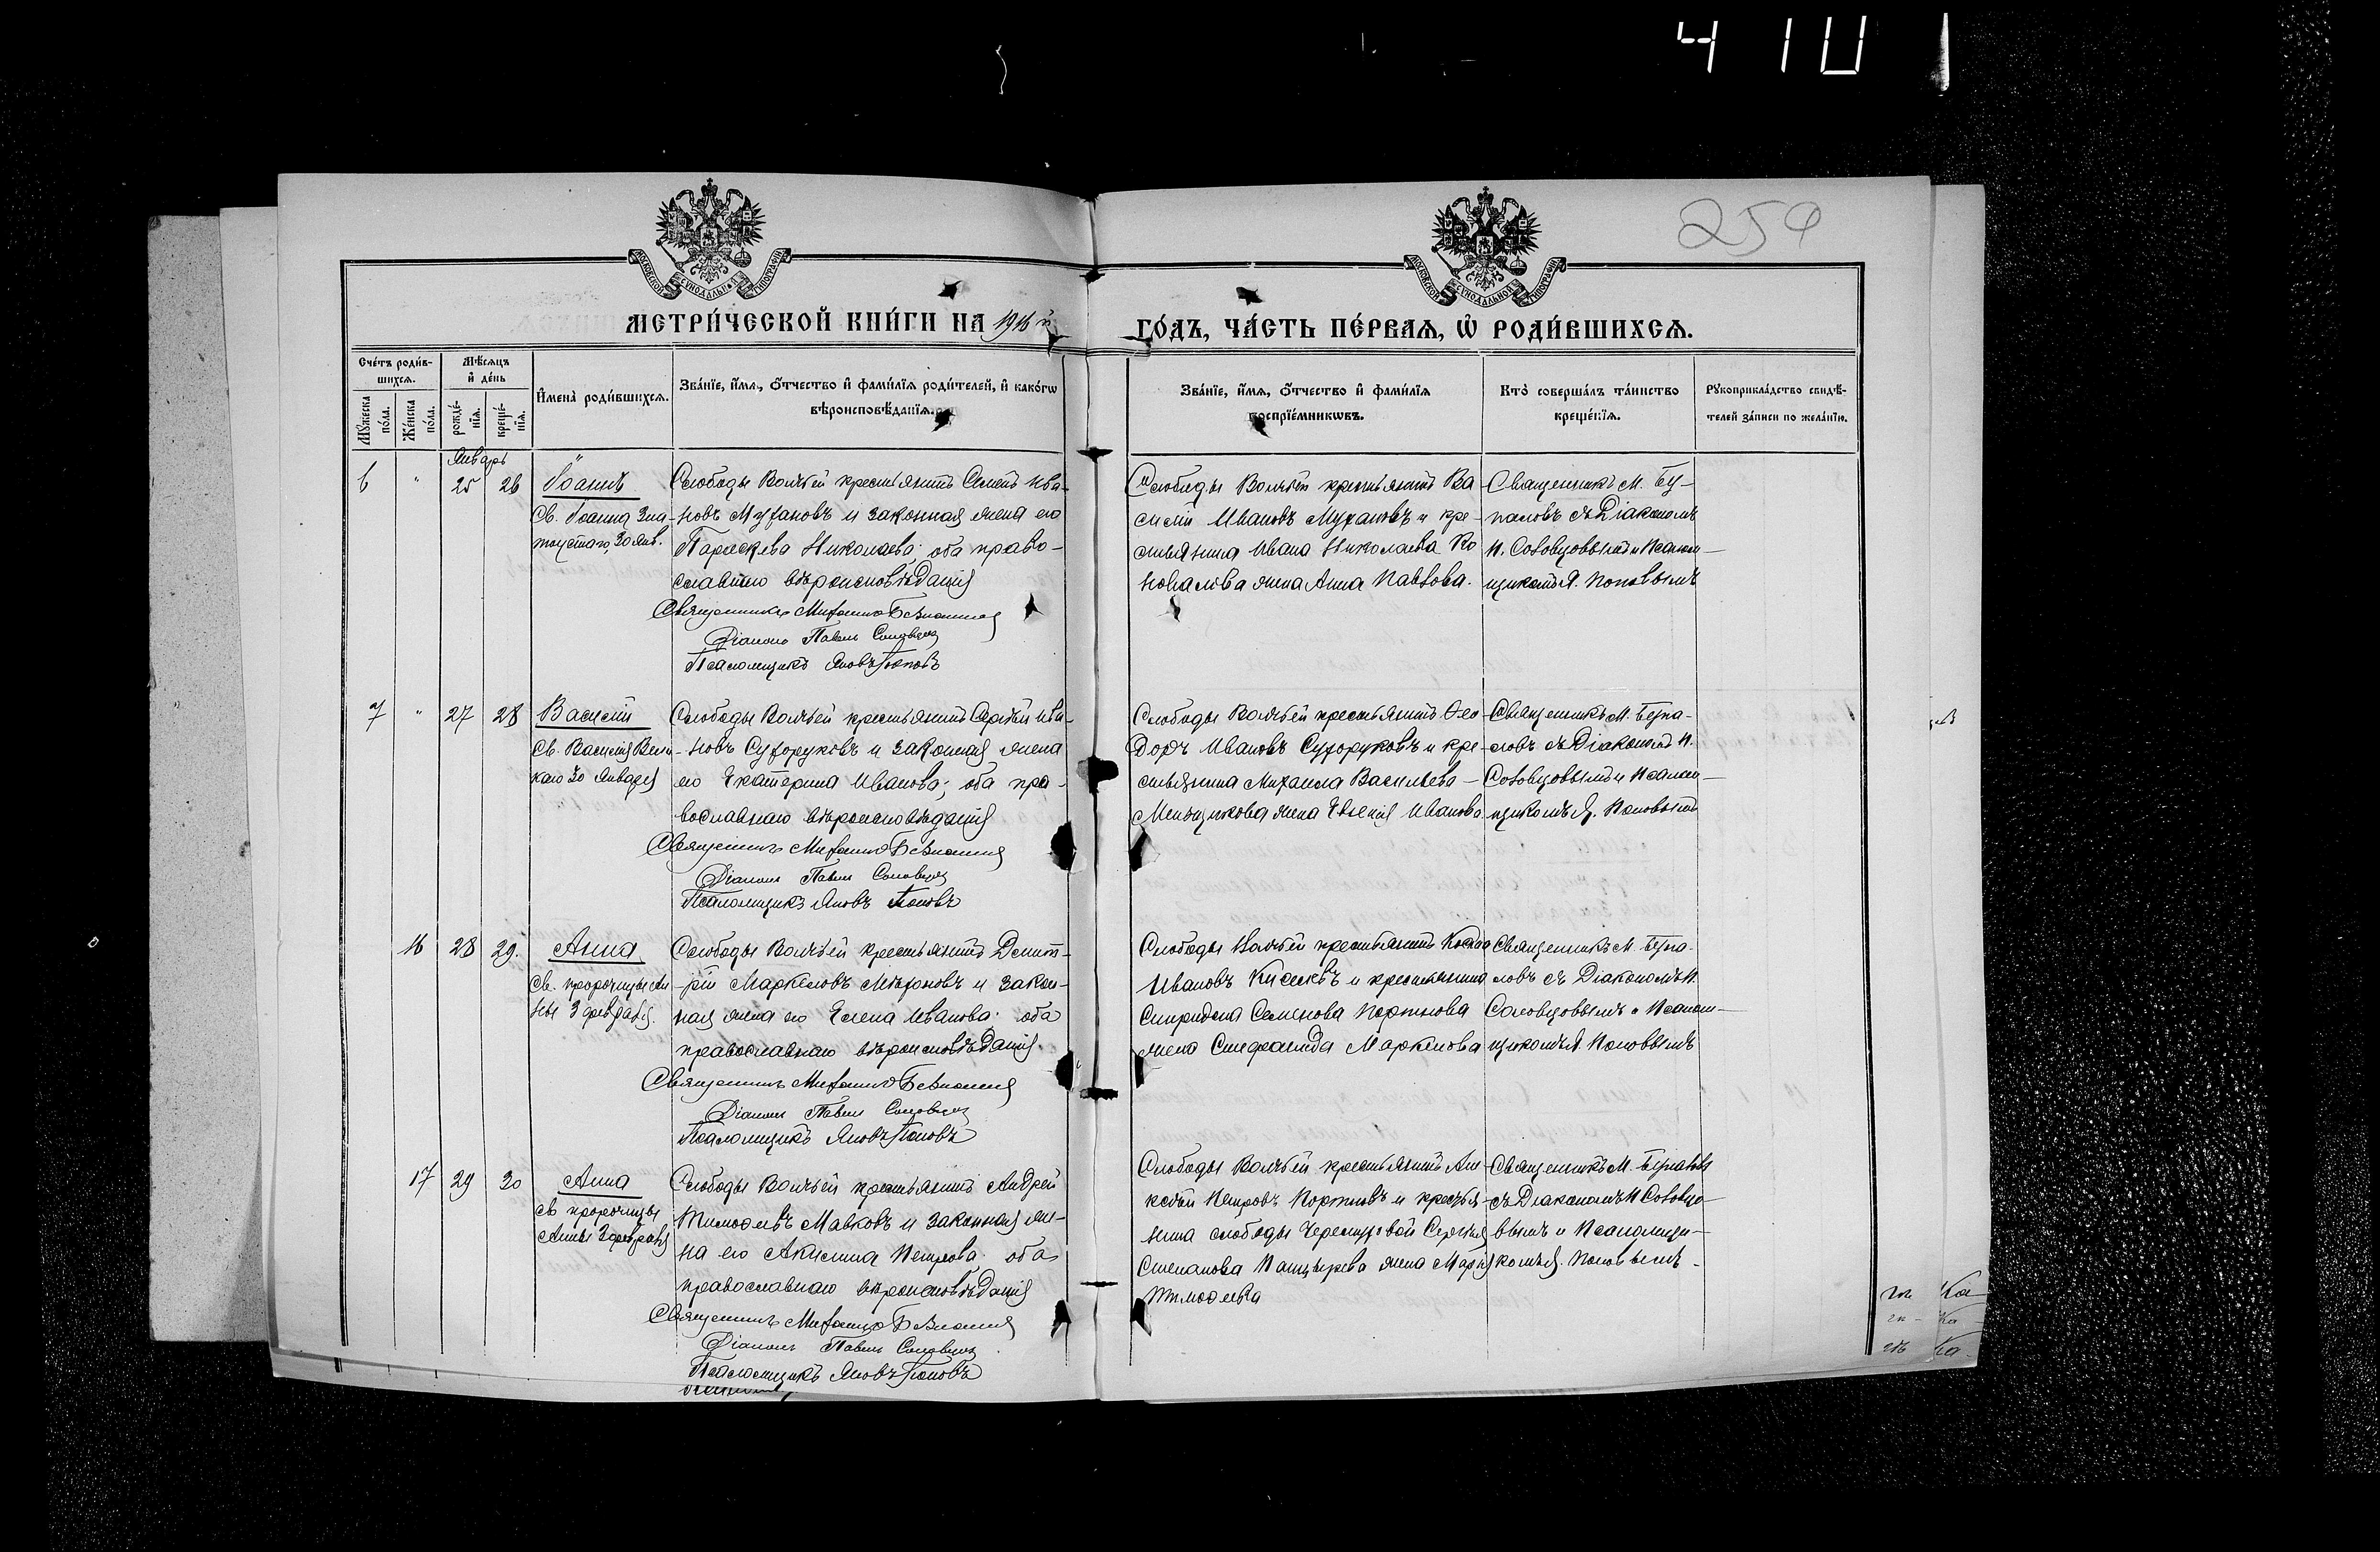 4 10
259
МОСКОВСКОЙ СѴНОДАЛЬНОЙ ТИПОГРАФІИ
МОСКОВСКОЙ СѴНОДАЛЬНОЙ ТИПОГРАФІИ
МЕТРИ́ЧЕСКОЙ КНИ́ГИ НА 1916 й
ГО́ДЪ, ЧА́СТЬ ПЕ́РВАѦ, Ѡ҆ РОДИ́ВШИХСѦ.
Сче́тъ роди́в-
шихсѧ.
Мꙋ́жеска по́ла.
Же́нска по́ла.
Мѣ́сѧцъ
и҆ де́нь
рожде́-
нїѧ.
креще́-
нїѧ.
И҆мена̀ роди́вшихсѧ.
Зва́нїе, и҆́мѧ, ѻ҆́тчество и҆ фами́лїѧ роди́телей, и҆ како́гѡ
вѣроисповѣ́данїѧ.
Зва́нїе, и҆́мѧ, ѻ҆́тчество и҆ фами́лїѧ
воспрїе́мникѡвъ.
Кто̀ соверша́лъ та́инство
креще́нїѧ.
Рꙋкоприкла́дство свидѣ́-
телей за́писи по жела́нїю.
Январь
6 " 25 26 Іоаннъ
Св. Іоанна Зла-
тоустаго, 30 янв.
Слободы Волчьей крестьянинъ Семенъ Ива-
новъ Мухановъ и законная жена его
Параскева Николаева оба право-
славнаго вѣроисповѣданія
Священникъ Митрофанъ
Діаконъ Павелъ Соловцовъ
Псаломщикъ Яковъ Поповъ
Слободы Волчьей крестьянинъ Ва
силій Ивановъ Мухановъ и кре-
стьянина Ивана Николаева Ко
новалова жена Анна Павлова.
Священникъ М.
съ Діакономъ
П. Соловцовымъ и Псалом-
щикомъ Я. Поповымъ
7 " 27 28 Василій
Св. Василія Вели-
каго 30 Января
Слободы Волчьей крестьянинъ Сергѣй Ива-
новъ Сухоруковъ и законная жена
его Екатерина Иванова; оба пра-
вославнаго вѣроисповѣданія
Священникъ Митрофанъ
Діаконъ Павелъ Соловцовъ
Псаломщикъ Яковъ Поповъ
Слободы Волчьей крестьянинъ Ѳео
доръ Ивановъ Сухоруковъ и кре-
стьянина Михаила Васильева
жена Евгенія Иванова
Священникъ М.
съ Діакономъ П.
Соловцовымъ и Псалом-
щикомъ Я. Поповымъ
16 28 29. Анна
Св. пророчицы Ан-
ны 3 февраля.
Слободы Волчьей крестьянинъ Димит-
рій Маркеловъ и закон-
ная жена его Елена Иванова оба
православнаго вѣроисповѣданія.
Священникъ Митрофанъ
Діаконъ Павелъ Соловцовъ
Псаломщикъ Яковъ Поповъ
Слободы Волчьей крестьянинъ
Ивановъ и крестьянина
Спиридона Семенова Портнова
жена Маркелова
Священникъ М.
съ Діакономъ П.
Соловцовымъ и Псалом-
щикомъ Я. Поповымъ
17 29 30 Анна
Св пророчицы
Анны 3 февраля
Слободы Волчьей крестьянинъ Андрей
Тимоѳеевъ Малковъ и законная же-
на его Акилина Петрова оба
православнаго вѣроисповѣданія
Священникъ Митрофанъ
Діаконъ Павелъ Соловцовъ
Псаломщикъ Яковъ Поповъ
Слободы Волчьей крестьянинъ Але-
ксѣй Петровъ Портновъ и крестья-
нина слободы Сергѣя
Степанова жена Марія
Тимоѳеева
Священникъ М.
съ Діакономъ П Соловцо-
вымъ и Псаломщи-
комъ Я. Поповымъ